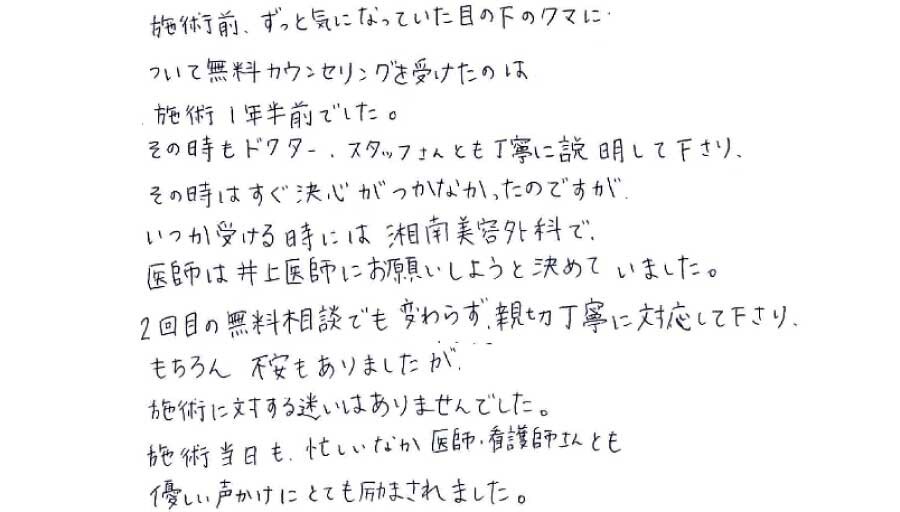 施術前、ずっと気になっていた目の下のクマに
ついて無料カウンセリングを受けたのは
施術1年半前でした。
その時もドクター、スタッフさんとも丁寧に説明して下さり、
その時はすぐ決心がつかなかったのですが、
いつか受ける時には湘南美容外科で、
医師は井上医師にお願いしようと決めていました。
2回目の無料相談でも変わらず、親切丁寧に対応して下さり、
もちろん不安もありましたが、
施術に対する迷いはありませんでした。
施術当日も、忙しいなか医師・看護師さんとも
優しい声かけにとても励まされました。